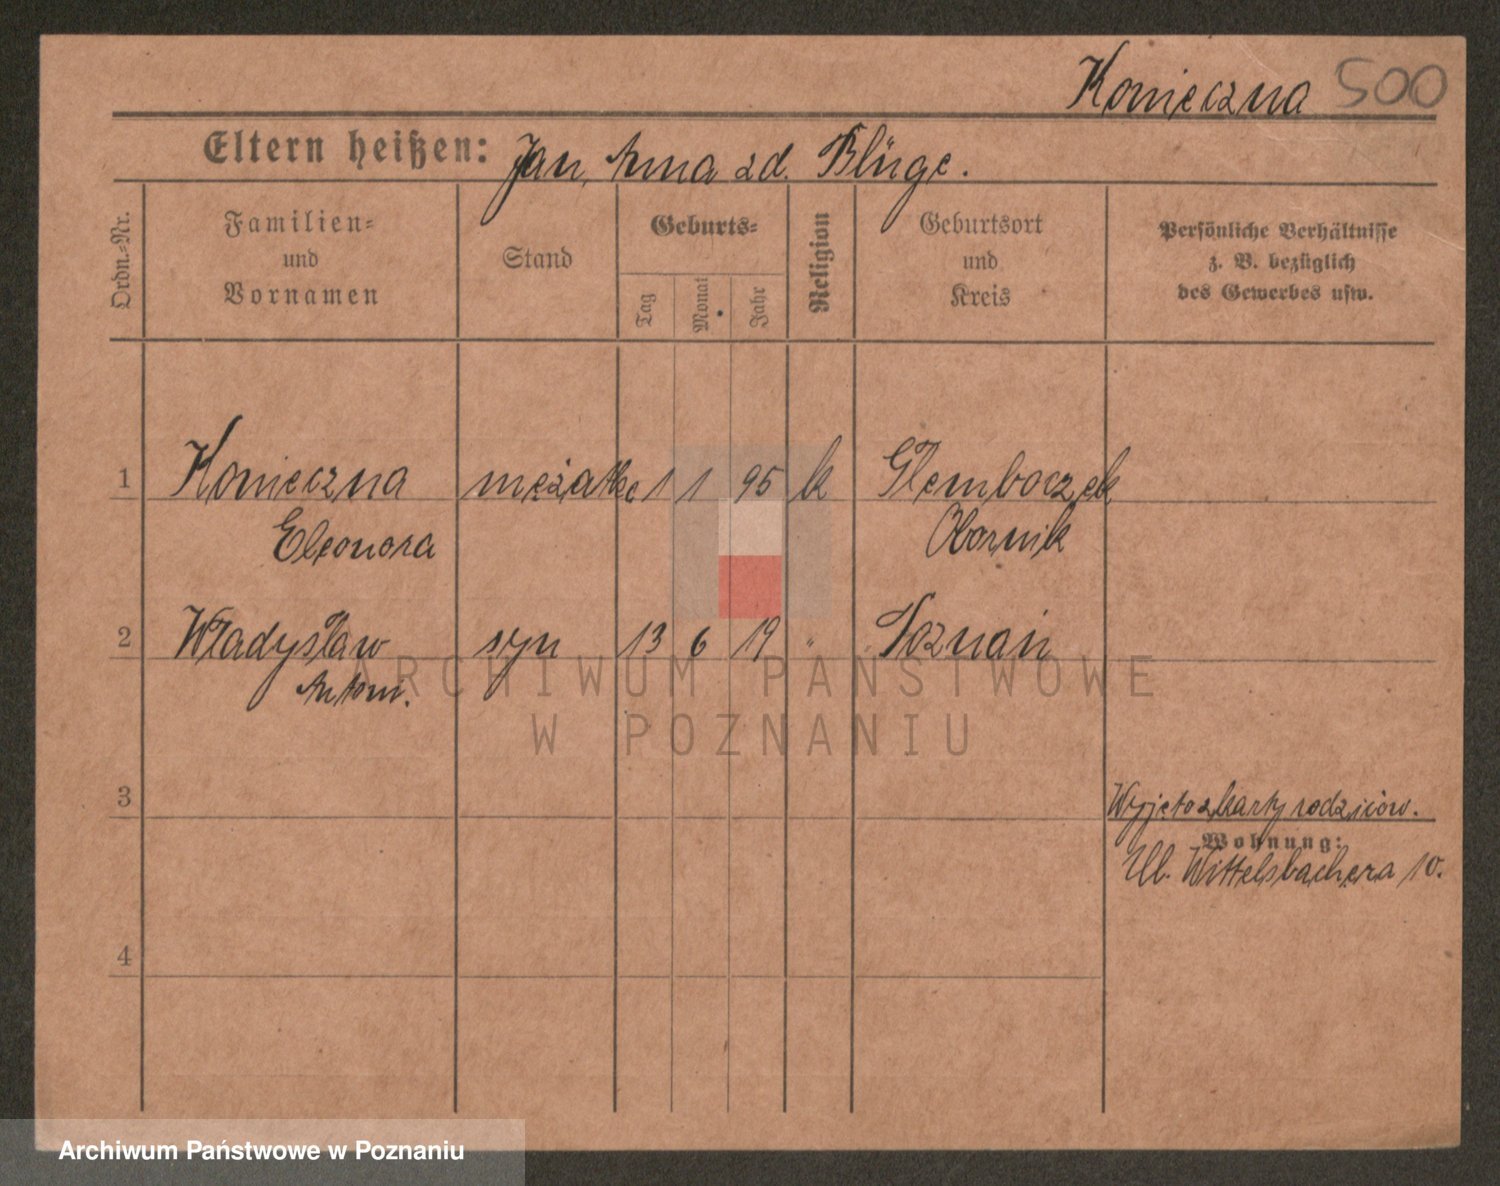 Konieczna 500
Eltern heißen: Jan, Anna zd. Blüge.
Ordn.-Nr.
Familien-
und
Vornamen
Stand
Geburts-
Tag
Monat
Jahr
Religion
Geburtsort
und
Kreis
Persönliche Verhältnisse
z. B. bezüglich
des Gewerbes usw.
1 Konieczna mężatka 1 1 95 k Głemboczek
Eleonora Obornik
2 Władysław syn 13 6 19 " Poznań
Antoni.
ARCHIWUM PAŃSTWOWE
W POZNANIU
3
Wyjęto z karty rodziców.
Wohnung:
Ul. Wittelsbachera 10.
4
Archiwum Państwowe w Poznaniu